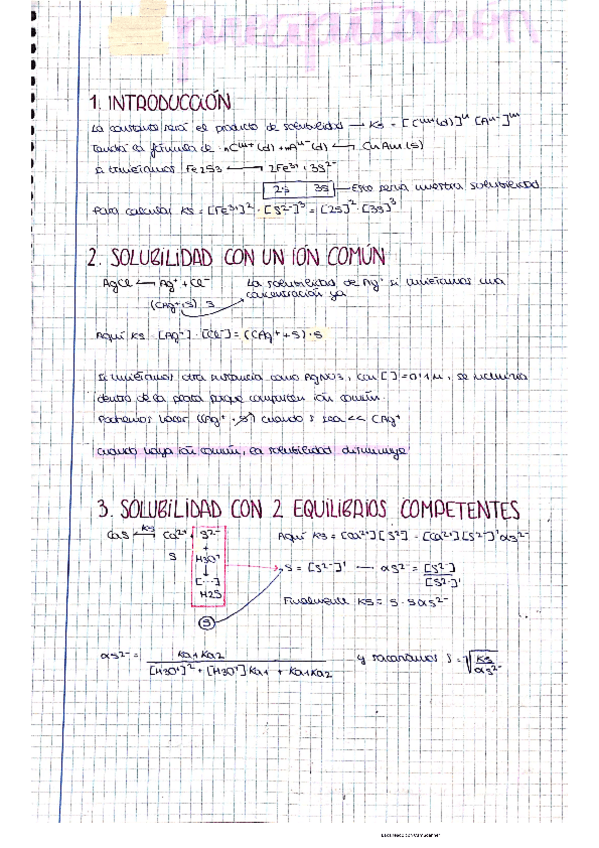 precipitación
1. INTRODUCCIÓN
La constante será el producto de solubilidad → Ks = [Cm+(d)]n [An-]m
Tendrá la fórmula de nCm+(d) + mAn-(d) ⟷ CnAm(s)
Si tuviéramos Fe2S3 ⟷ 2Fe3+ + 3S2-
2s 3s — Esto sería nuestra solubilidad
Para calcular Ks = [Fe3+]2 · [S2-]3 = [2s]2 · [3s]3
2. SOLUBILIDAD CON UN IÓN COMÚN
AgCl ⟷ Ag+ + Cl-
La solubilidad de Ag+ si tuviéramos una
concentración ya
(CAg+ + S) S
Aquí Ks [Ag+] · [Cl-] = (CAg+ + S) · S
Si tuviéramos otra sustancia como AgNO3, con [ ] = 0'1M, se incluiría
dentro de la porque comparten ión común.
Podremos hacer (CAg+ + S) cuando s sea << CAg+
cuando haya ión común, la solubilidad disminuye
3. SOLUBILIDAD CON 2 EQUILIBRIOS COMPETENTES
CaS ⟷ Ks Ca2+ + S2-
Aquí Ks = [Ca2+][S2-] = [Ca2+][S2-]' αs2-
S + H3O+
↓
[...]
H2S
S = [S2-]' — αs2- = [S2-] / [S2-]'
Finalmente Ks = S · S αs2-
S
αs2- = Ka1 Ka2 / [H3O+]2 + [H3O+] Ka1 + Ka1Ka2
y sacaríamos S = √Ks / αs2-